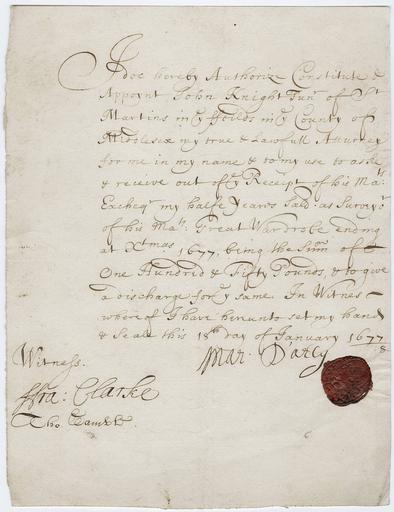 I doe hereby Authorize Constitute &
Appoynt John Knight Junr of St
Martins in ye ffeilds in ye County of
Middlesex my true & Lawfull Atturney
for me in my name & to my use to aske
& receive out of ye Receipt of his Mats
Excheqr my halfe yeares Sald: as Surveyor
of his Mats Great Wardrobe ending
at Xtmas 1677, being the Summ of
One Hundrid & Fifty Pounds, & to give
a discharge for ye same In Witness
whereof I have herunto set my hand
& Seale this 18th day of January 1677/8
Mar: D'arcy
Witness.
ffra: Clarke
Tho